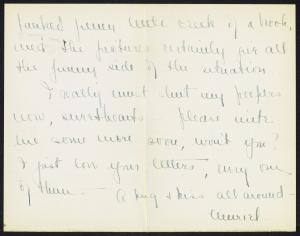 funny little book of a book,
and the pictures certainly give all
the funny side of the situation
I really must shut my peepers
now, sweethearts — please write
me some more soon, won't you?
I just love your letters, every one
of them —
A hug & kiss all around —